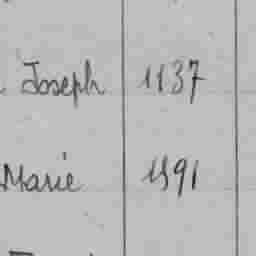 Joseph 1137
Marie 1191